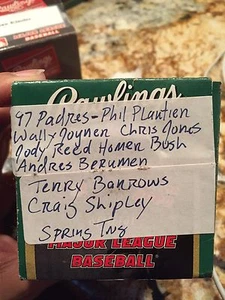 Rawlings
97 Padres - Phil Plantier
Wally Joyner Chris Jones
Jody Reed Homer Bush
Andres Berumen
Terry Burrows
Craig Shipley
Spring Tng
MAJOR LEAGUE
BASEBALL